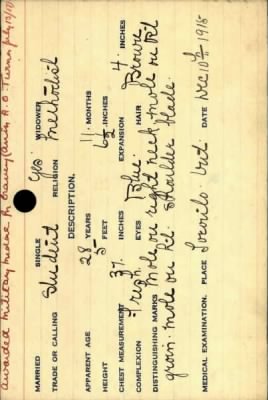 Awarded Military Medal
MARRIED SINGLE Yes WIDOWER
TRADE OR CALLING Student RELIGION Methodist
DESCRIPTION.
APPARENT AGE 28 YEARS 11 MONTHS
HEIGHT 5 FEET 6½ INCHES
CHEST MEASUREMENT 37 INCHES EXPANSION 4 INCHES
COMPLEXION Fresh EYES Blue HAIR Brown
DISTINGUISHING MARKS Mole on right neck mole on Rt
groin. mole on Rt. shoulder blade.
MEDICAL EXAMINATION. PLACE Ont DATE Dec 10th 1915